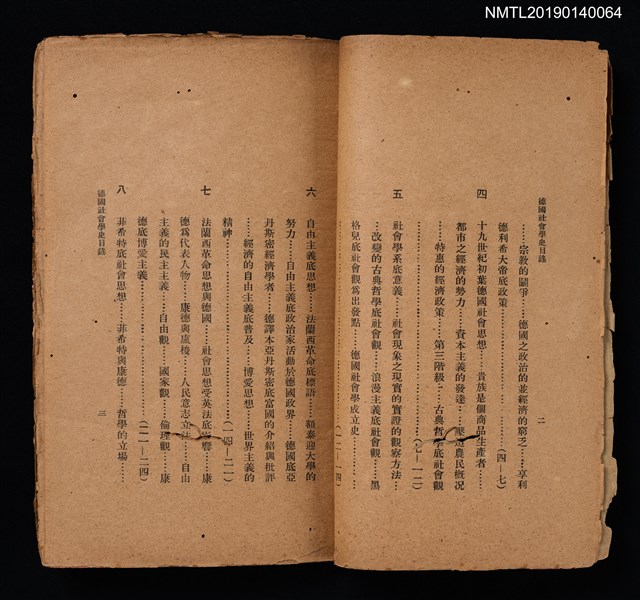 NMTL20190140064
德國社會學史目錄
二
……宗敎的鬪爭……德國之政治的並經濟的窮乏……享利
德利希大帝底政策……………………(四—七)
四
十九世紀初葉德國社會思想……貴族是個商品生產者……
都市之經濟的勢力……資本主義的發達……農民槪况
……特惠的經濟政策……第三階級……古典哲學底社會觀
……(七—一二)
五
社會學系底意義……社會現象之現實的實證的觀察方法…
…改變的古典哲學底社會觀……浪漫主義底社會觀……黑
格兒底社會觀爲出發點……德國社會學成立史
……(一二—一四)
六
自由主義底思想……法蘭西革命底標語……額泰迎大學的
努力……自由主義底政治家活動於德國政界……德國底亞
丹斯密經濟學者……德譯本亞丹斯密底富國的介紹與批評
……經濟的自由主義底普及……博愛思想……世界主義的
精神………………(一四—二一)
七
法蘭西革命思想與德國……社會思想受英法底影響……康
德爲代表人物……康德與盧梭……人民意志立法……自由
主義的民主主義……自由觀……國家觀……倫理觀……康
德底博愛主義………………(二一—二四)
八
菲希特底社會思想……菲希特與康德……哲學的立場……
德國社會學史目錄
三